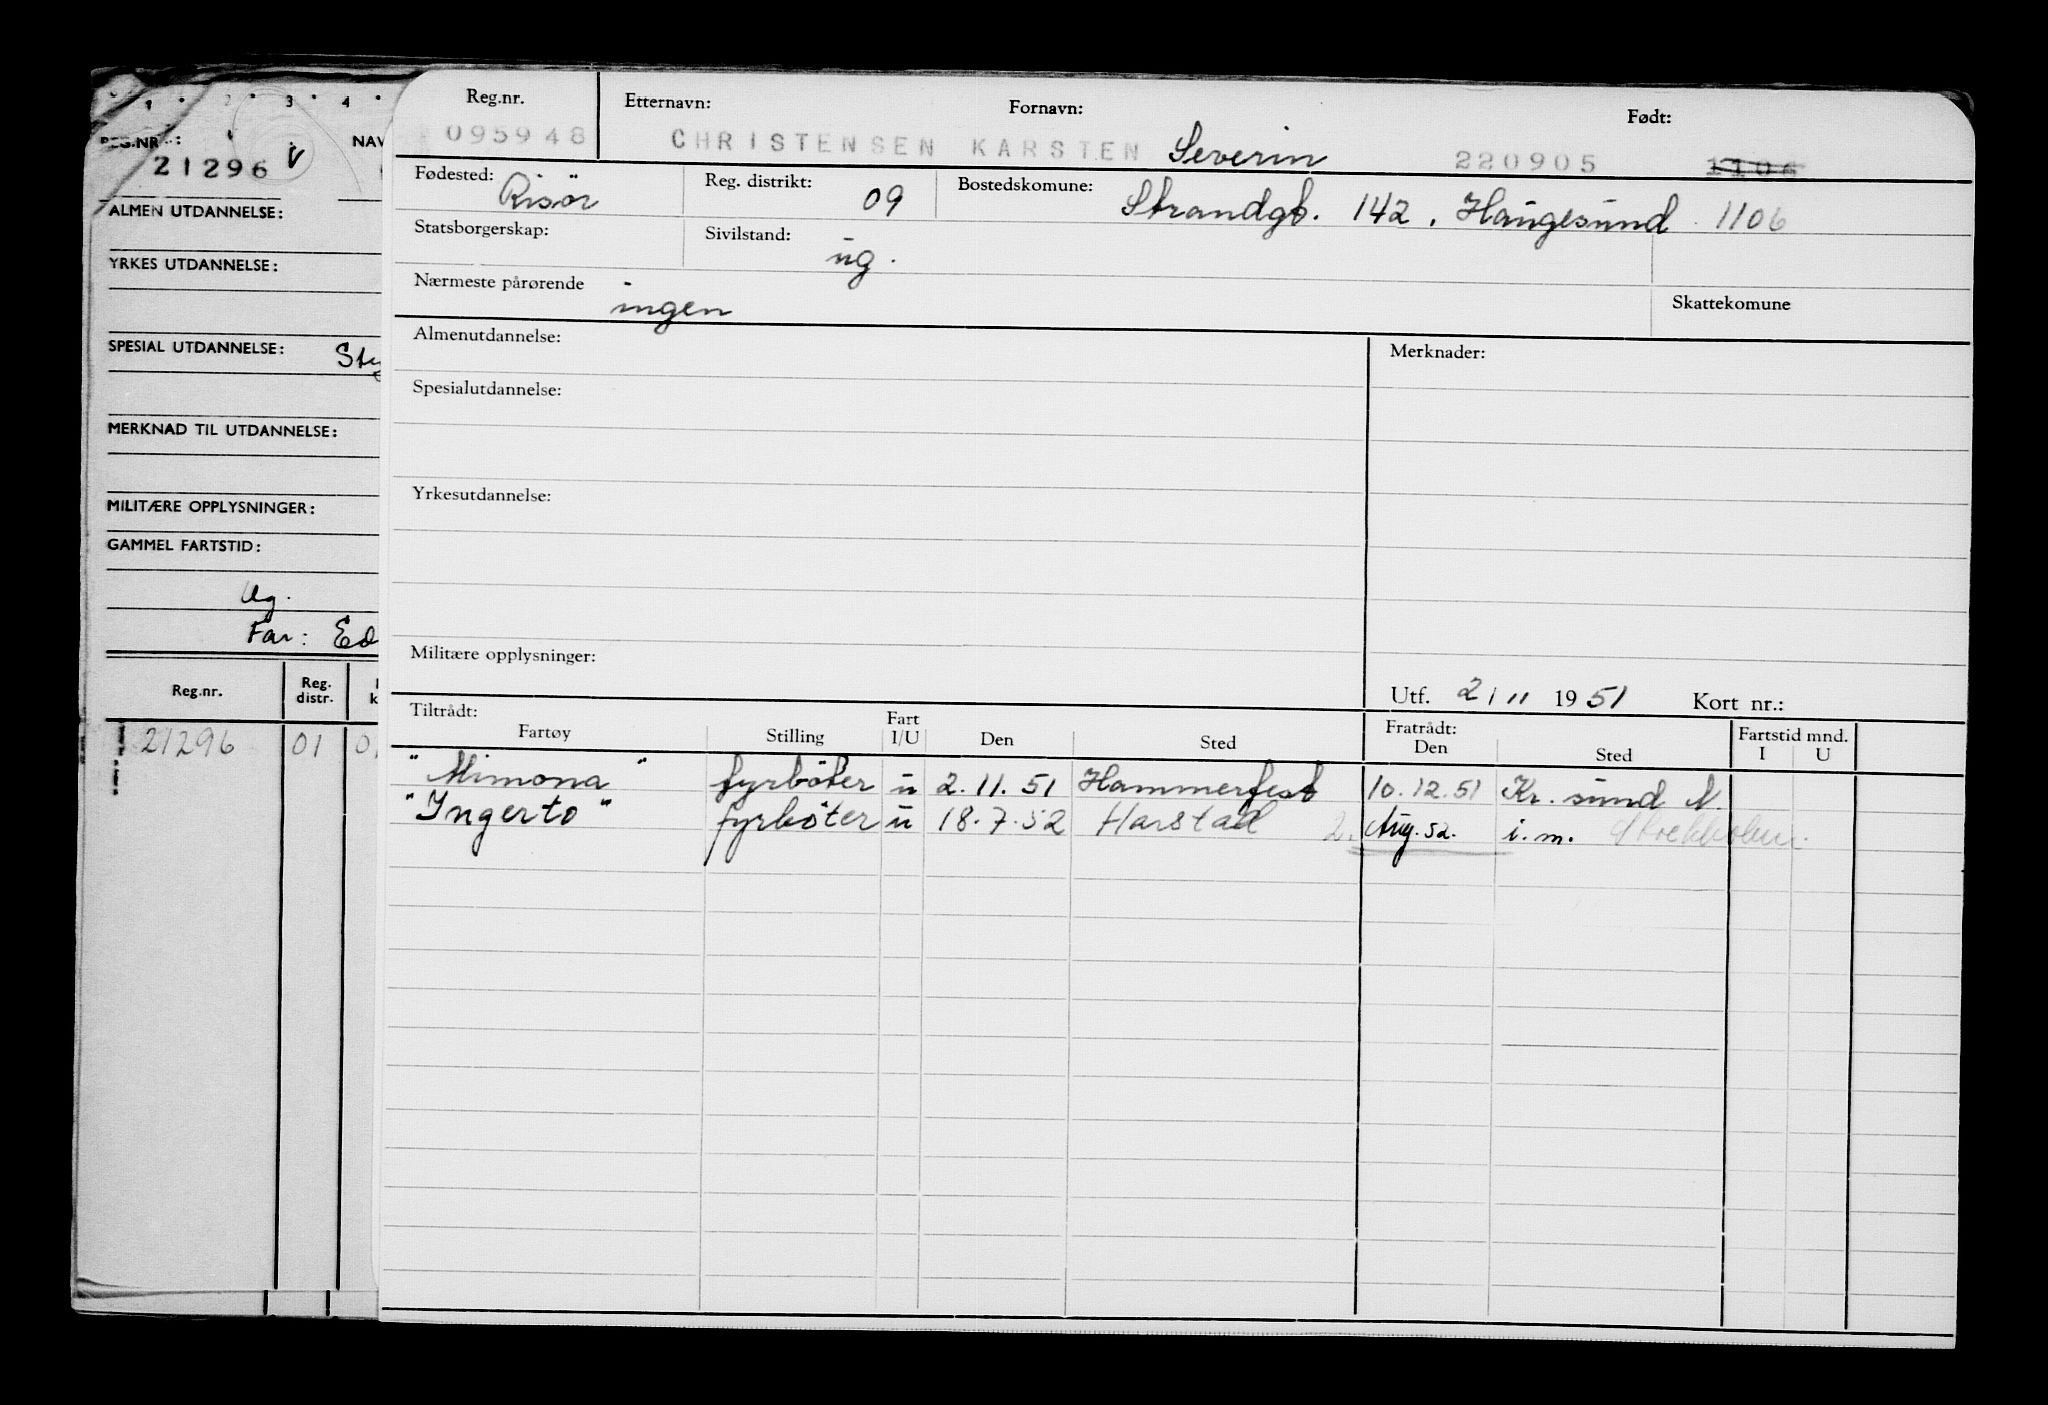 1 2 3 4
REG.NR.: NAV
21296 V
ALMEN UTDANNELSE:
YRKES UTDANNELSE:
SPESIAL UTDANNELSE:
MERKNAD TIL UTDANNELSE:
MILITÆRE OPPLYSNINGER:
GAMMEL FARTSTID:
Ug.
Far: Ed
Reg.nr. Reg. distr. k
21296 01
Reg.nr. Etternavn: Fornavn: Født:
095948 CHRISTENSEN KARSTEN Severin 220905 1106
Fødested: Risör Reg. distrikt: 09 Bostedskomune: Strandgt. 142, Haugesund 1106
Statsborgerskap: Sivilstand: ug.
Nærmeste pårørende ingen Skattekomune
Almenutdannelse: Merknader:
Spesialutdannelse:
Yrkesutdannelse:
Militære opplysninger:
Utf. 2/11 1951 Kort nr.:
Tiltrådt: Fart Fratrådt: Fartstid mnd.
Fartøy Stilling I/U Den Sted Den Sted I U
"Mimona" fyrböter u 2.11.51 Hammerfest 10.12.51 Kr. sund N
"Ingerto" fyrböter u 18.7.52 Harstad 2. Aug. 52. i.m. Stockholm.